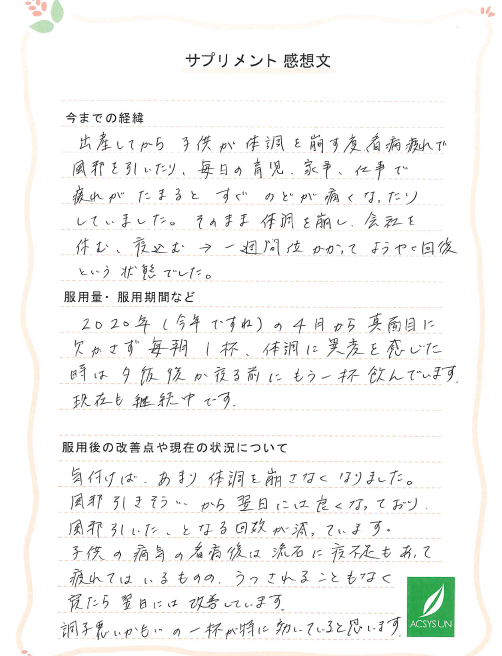 サプリメント 感想文
今までの経緯
出産してから 子供が体調を崩す度看病疲れで
風邪を引いたり、毎日の育児、家事、仕事で
疲れが たまると すぐ のどが痛くなったり
していました。そのまま 体調を崩し、会社を
休む、寝込む → 一週間位かかって ようやく回復
という状態でした。
服用量・服用期間など
2020年(今年ですね)の4月から 真面目に
欠かさず 毎朝 1杯、体調に異変を感じた
時は 夕飯後か寝る前に もう一杯 飲んでいます。
現在も 継続中です。
服用後の改善点や現在の状況について
気付けば、あまり 体調を崩さなくなりました。
風邪引きそう… から 翌日には良くなっており、
風邪引いた、となる回数が減っています。
子供の病気の看病後は 流石に 寝不足もあって
疲れてはいるものの、うつされることもなく
寝たら 翌日には 改善しています。
調子悪いかも!? の一杯が特に効いていると思います。
ACSYSUN